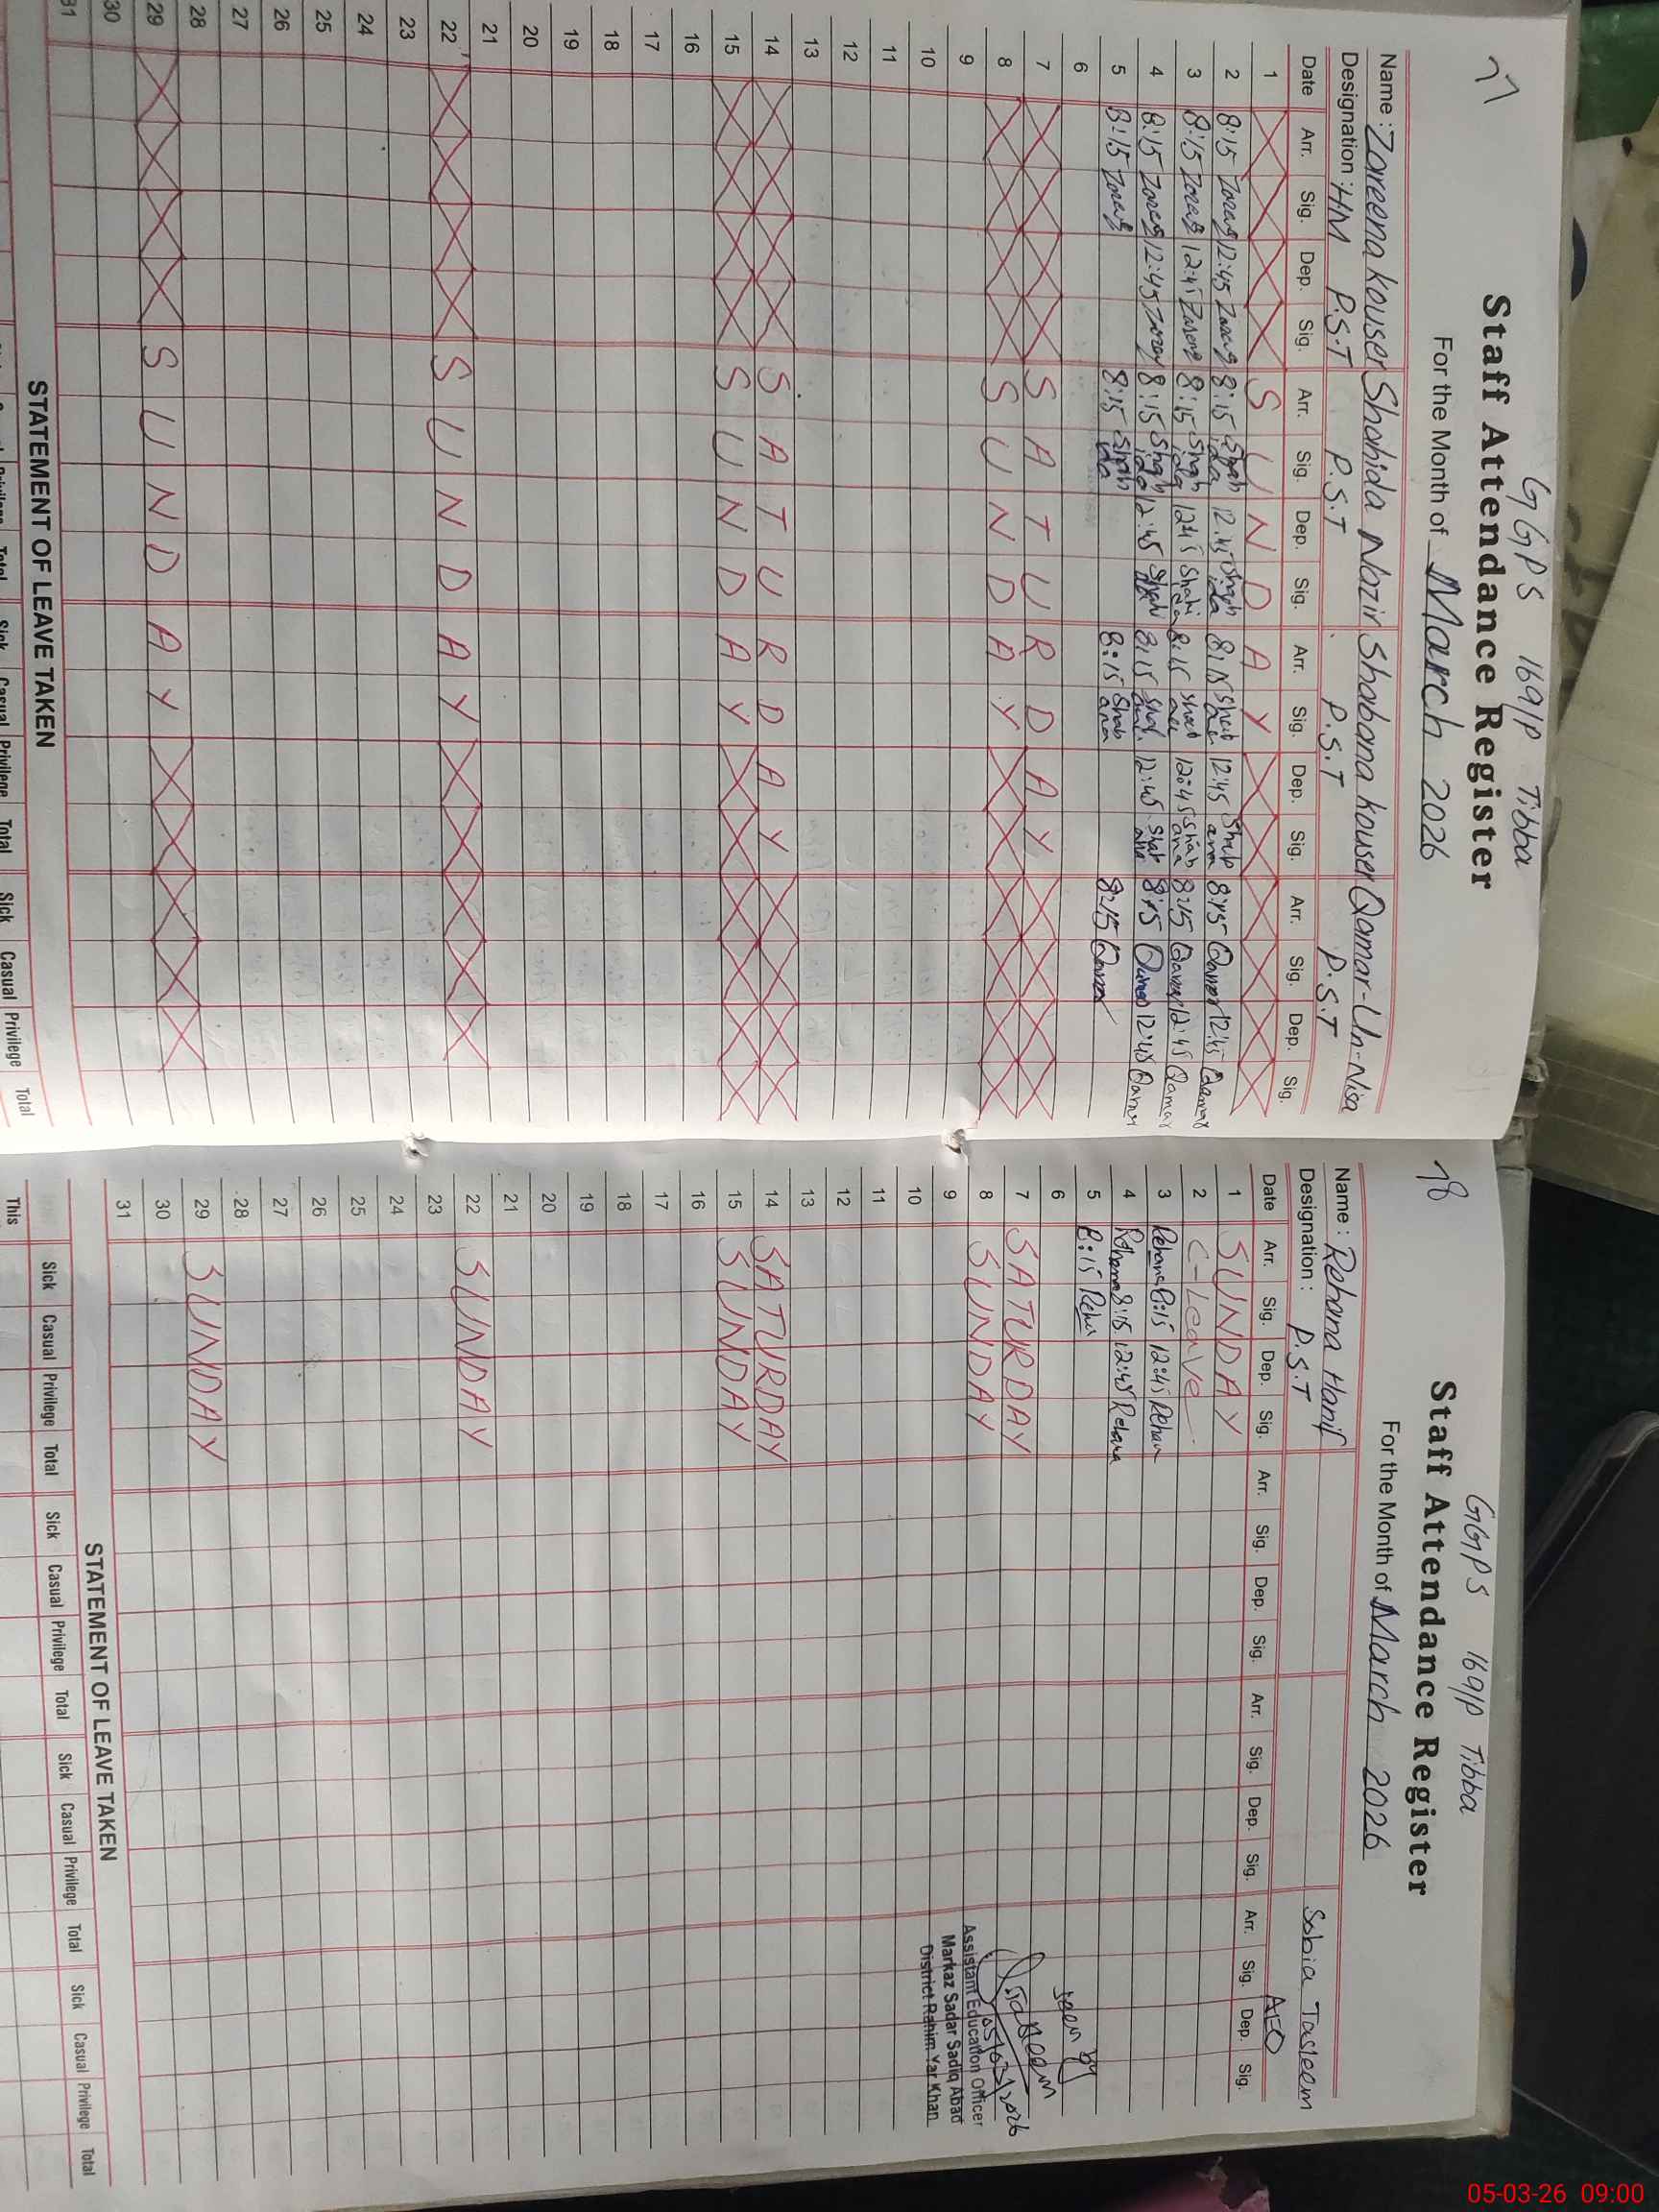 71
GGPS 169/P Tibba
Staff Attendance Register
For the Month of March 2026
Name : Zareena kouser Shahida Nazir Shabana kouser Qamar-Un-Nisa
Designation : HM P.S.T P.S.T P.S.T P.S.T
Date Arr. Sig. Dep. Sig. Arr. Sig. Dep. Sig. Arr. Sig. Dep. Sig. Arr. Sig. Dep. Sig.
1 S U N D A Y
2 8:15 12:45 8:15 12:45 8:15 12:45 Shab ana 8:15 Qamar 12:45 Qamar
3 8:15 12:45 8:15 12:45 8:15 12:45 Shab ana 8:15 12:45 Qamar
4 8:15 12:45 8:15 12:45 8:15 12:45 8:15 12:45 Qamar
5 8:15 8:15 Shah ida 8:15 Shab ana 8:15 Qamar
6
7 S A T U R D A Y
8 S U N D A Y
9
10
11
12
13
14 S A T U R D A Y
15 S U N D A Y
16
17
18
19
20
21
22 S U N D A Y
23
24
25
26
27
28
29 S U N D A Y
30
31
STATEMENT OF LEAVE TAKEN
Privilege Total Sick Casual Privilege Total Sick Casual Privilege Total
78
GGPS 169/P Tibba
Staff Attendance Register
For the Month of March 2026
Name : Rehana Hanif
Designation : P.S.T
Sobia Tasleem
AEO
Date Arr. Sig. Dep. Sig. Arr. Sig. Dep. Sig. Arr. Sig. Dep. Sig. Arr. Sig. Dep. Sig.
1 SUNDAY
2 C-Leave
3 Rehana 8:15 12:45 Rehana
4 Rehana 8:15 12:45 Rehana
5 8:15
6
7 SATURDAY
8 SUNDAY
9
10
11
12
13
14 SATURDAY
15 SUNDAY
16
17
18
19
20
21
22 SUNDAY
23
24
25
26
27
28
29 SUNDAY
30
31
Seen by
Assistant Education Officer
Markaz Sadar Sadiq Abad
District Rahim Yar Khan
STATEMENT OF LEAVE TAKEN
Sick Casual Privilege Total Sick Casual Privilege Total Sick Casual Privilege Total Sick Casual Privilege Total
This
05-03-26 09:00